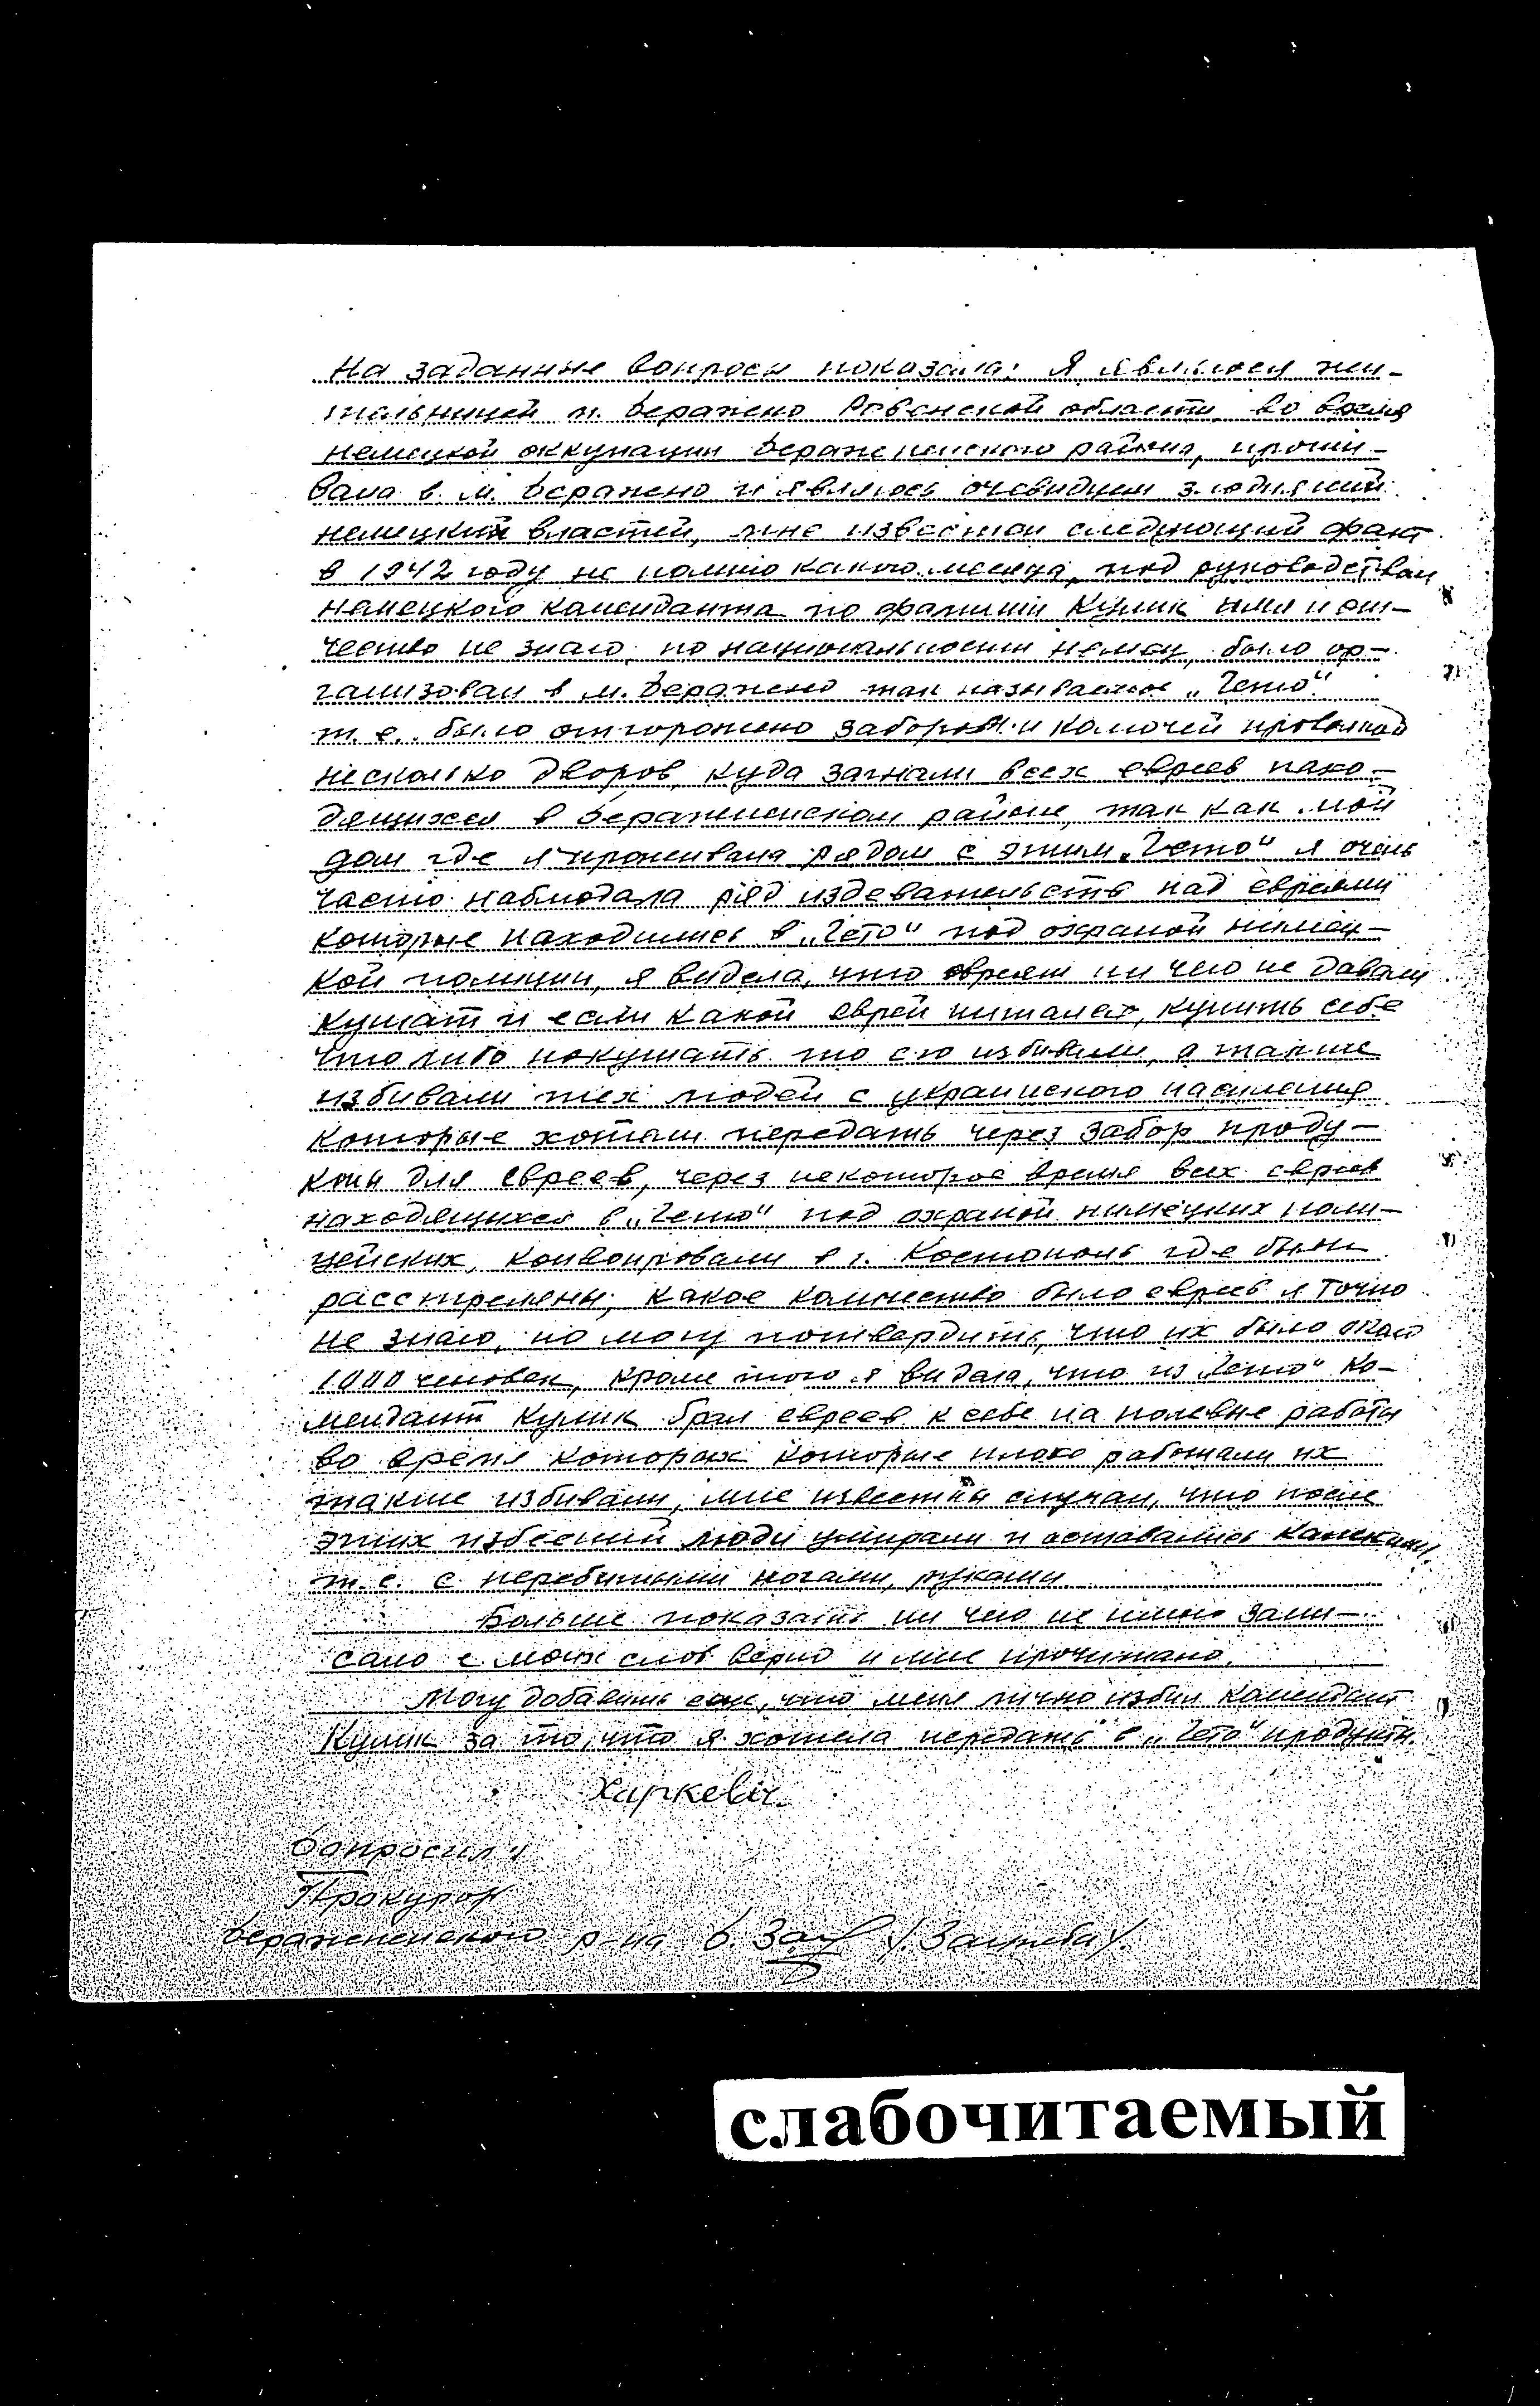 На заданные вопросы показала: Я являюсь жи-
тельницей м. Деражно Ровенской области, во время
немецкой оккупации Деражненского района, прожи-
вала в м. Деражно и являюсь очевидцем злодияний
немецких властей, мне известен следующий факт
в 1942 году не помню какого месяца, под руководством
немецкого каменданта по фамилии Кулик имя и от-
чество не знаю, по национальности немец, было ор-
ганизован в м. Деражно так называемое „Гето"
т.е. было отгорожено забором и колючей проволкой
несколько дворов, куда загнали всех евреев нахо-
дящихся в Деражненском районе, так как мой
дом где я проживала рядом с этим „Гето" я очень
часто наблюдала ряд издевательств над евреями
которые находились в „Гето" под охраной немец-
кой полиции, я видела, что евреям ни чего не давали
кушат и если какой еврей питался, купить себе
что либо покушать то его избивали, а также
избивали тех людей с украинского населения
которые хотели передать через забор проду-
кты для евреев, через некоторое время всех евреев
находящихся в „Гето" под охраной немецких поли-
цейских, конвоировали в г. Костополь где были
расстреляны, какое количество было евреев я точно
не знаю, но могу потвердить, что их было около
1000 человек, кроме того я видела, что из „Гето" ко-
мендант Кулик брал евреев к себе на полевые работы
во время которых которые плохо работали их
также избивали, мне известны случаи, что после
этих избеений люди умирали и оставались калеками,
т.е. с перебитыми ногами, руками
Больше показать ни чего не имею запи-
сано с моих слов верно и мне прочитано.
Могу добавить еще, что меня лично избил камендант
Кулик за то, что я хотела передать в „Гето" продукты.
Харкевич
Допросил:
Прокурор
Деражненского р-на
слабочитаемый